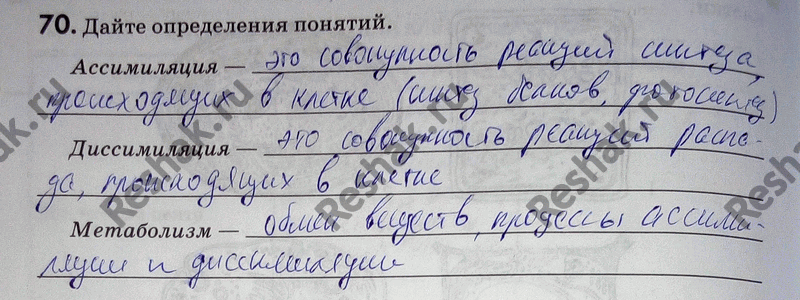 70. Дайте определения понятий.
Ассимиляция — это совокупность реакций синтеза,
происходящих в клетке (синтез белков, фотосинтез)
Диссимиляция — это совокупность реакций распа-
да, происходящих в клетке
Метаболизм — обмен веществ, процессы ассими-
ляции и диссимиляции
Reshak.ru
Reshak.ru
Reshak.ru
Reshak.ru